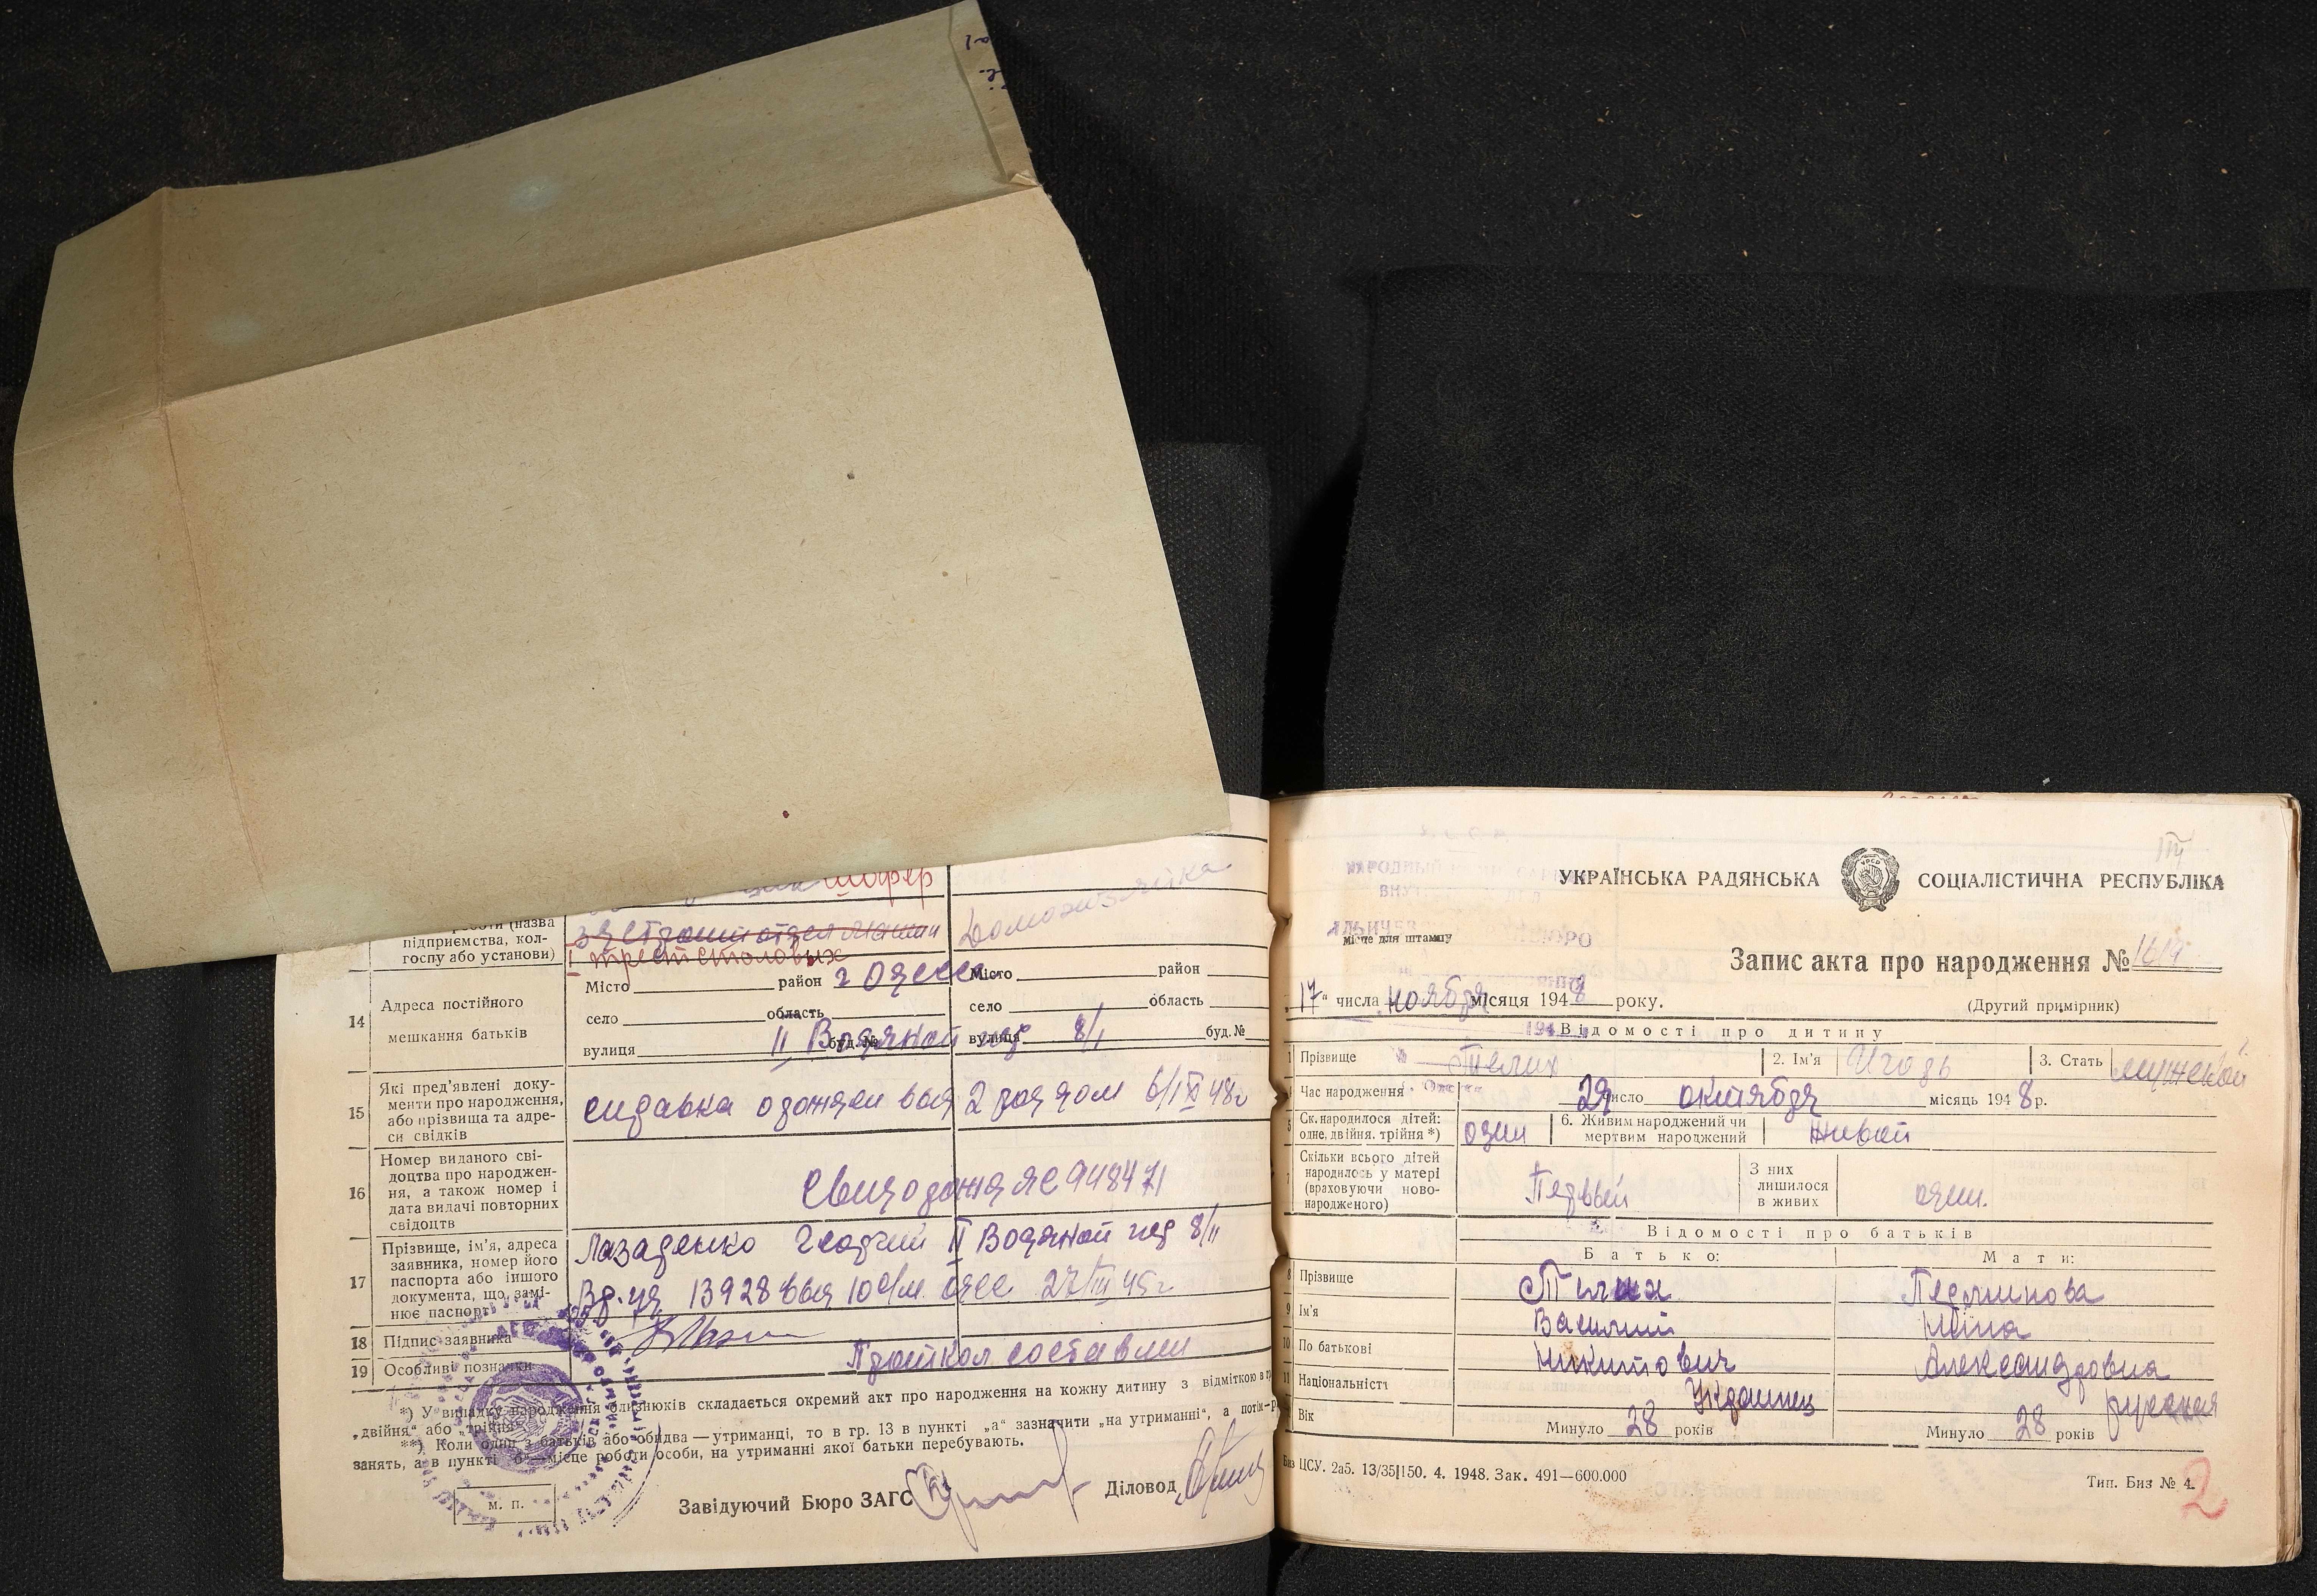 шофер
роботи (назва
підприємства, кол-
госпу або установи)
Домохозяйка
трест столовых
14
Адреса постійного
мешкання батьків
Місто район г Одесса
село область
вулиця II Водяной пер буд. № 8/1
Місто район
село область
вулиця буд. №
15
Які пред'явлені доку-
менти про народження,
або прізвища та адре-
си свідків
справка о рожден выд 2 род дом 6/XI 48г
16
Номер виданого сві-
доцтва про народжен-
ня, а також номер і
дата видачі повторних
свідоцтв
948471
17
Прізвище, ім'я, адреса
заявника, номер його
паспорта або іншого
документа, що замі-
нює паспорт
Лазаренко Георгий II Водяной пер 8/11
13928 выд 10 о/м Одес 27/III 45г
18 Підпис заявника
19 Особливі позначки
Протокол составлен
*) У випадку народження близнюків складається окремий акт про народження на кожну дитину з відміткою в гр.
„двійня“ або „трійня“
**) Коли один з батьків або обидва — утриманці, то в гр. 13 в пункті „а“ зазначити „на утриманні“, а потім р.
занять, а в пункті „б“ — місце роботи особи, на утриманні якої батьки перебувають.
м. п.
Завідуючий Бюро ЗАГС
Діловод
III
УКРАЇНСЬКА РАДЯНСЬКА СОЦІАЛІСТИЧНА РЕСПУБЛІКА
Місце для штампу
БЮРО
Запис акта про народження № 1614
17“ числа ноября місяця 1948 року.
(Другий примірник)
Відомості про дитину
1 Прізвище Телих 2. Ім'я Игорь 3. Стать мужской
Час народження 29 число октября місяць 1948 р.
5 Ск. народилося дітей:
одне, двійня. трійня *)
один
6. Живим народжений чи
мертвим народжений
живой
7 Скільки всього дітей
народилось у матері
(враховуючи ново-
народженого)
Первый
З них
лишилося
в живих
один.
Відомості про батьків
Батько: Мати:
8 Прізвище Телих
9 Ім'я Василий Нина
10 По батькові Никитович Александровна
11 Національність Украинец русская
Вік Минуло 28 років Минуло 28 років
Биз ЦСУ. 2а5. 13/35|150. 4. 1948. Зак. 491—600.000
Тип. Биз № 4.
2